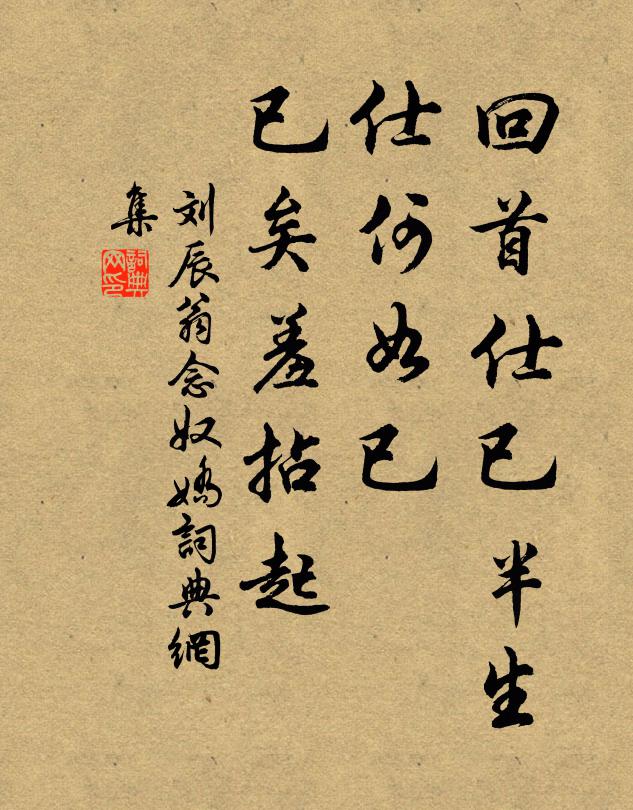 回首仕已半生
仕何如已
已矣羞拈起
刘辰翁念奴娇詞典網
集
詞典
网印